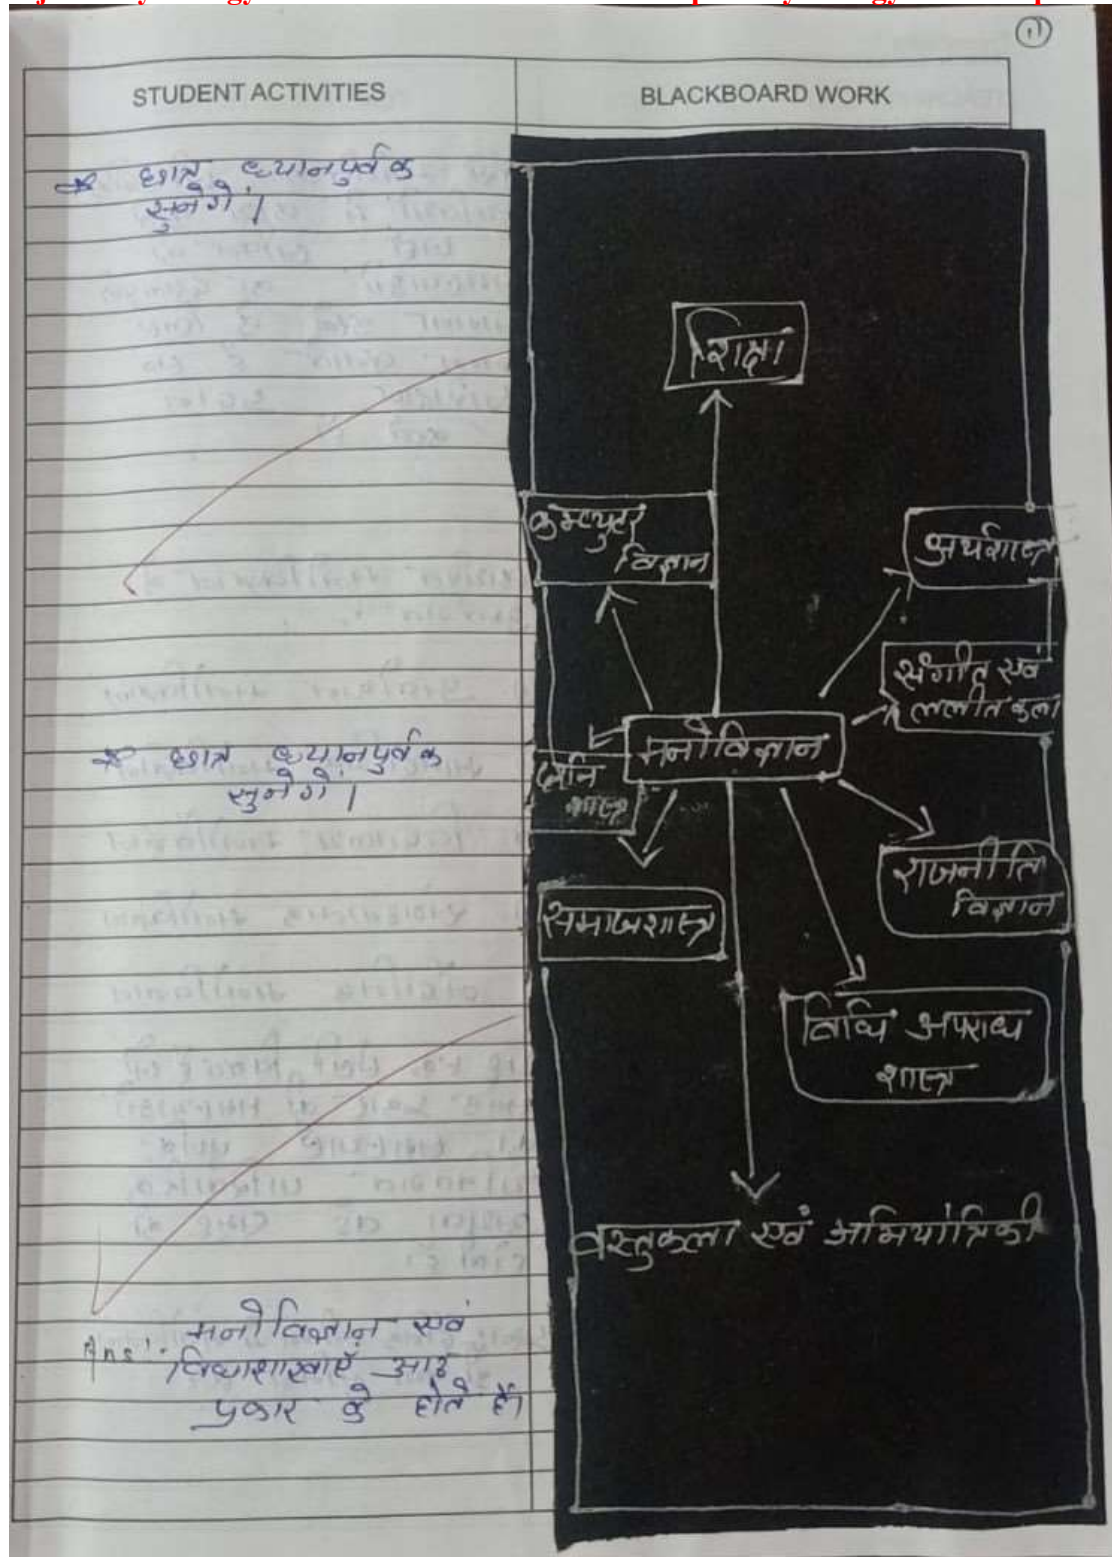 STUDENT ACTIVITIES
BLACKBOARD WORK
छात्र ध्यानपुर्वक
सुनेगे।
छात्र ध्यानपुर्वक
सुनेगें।
Ans:- मनोविज्ञान एवं
विधाशाखाएँ आठ
प्रकार के होते हैं।
शिक्षा
कम्प्युटर
विज्ञान
अर्थशास्त्र
संगीत एवं
ललीत कला
मनोविज्ञान
शास्त्र
राजनीति
विज्ञान
समाजशास्त्र
विधि अपराध
शास्त्र
वस्तुकला एवं अभियांत्रिकी